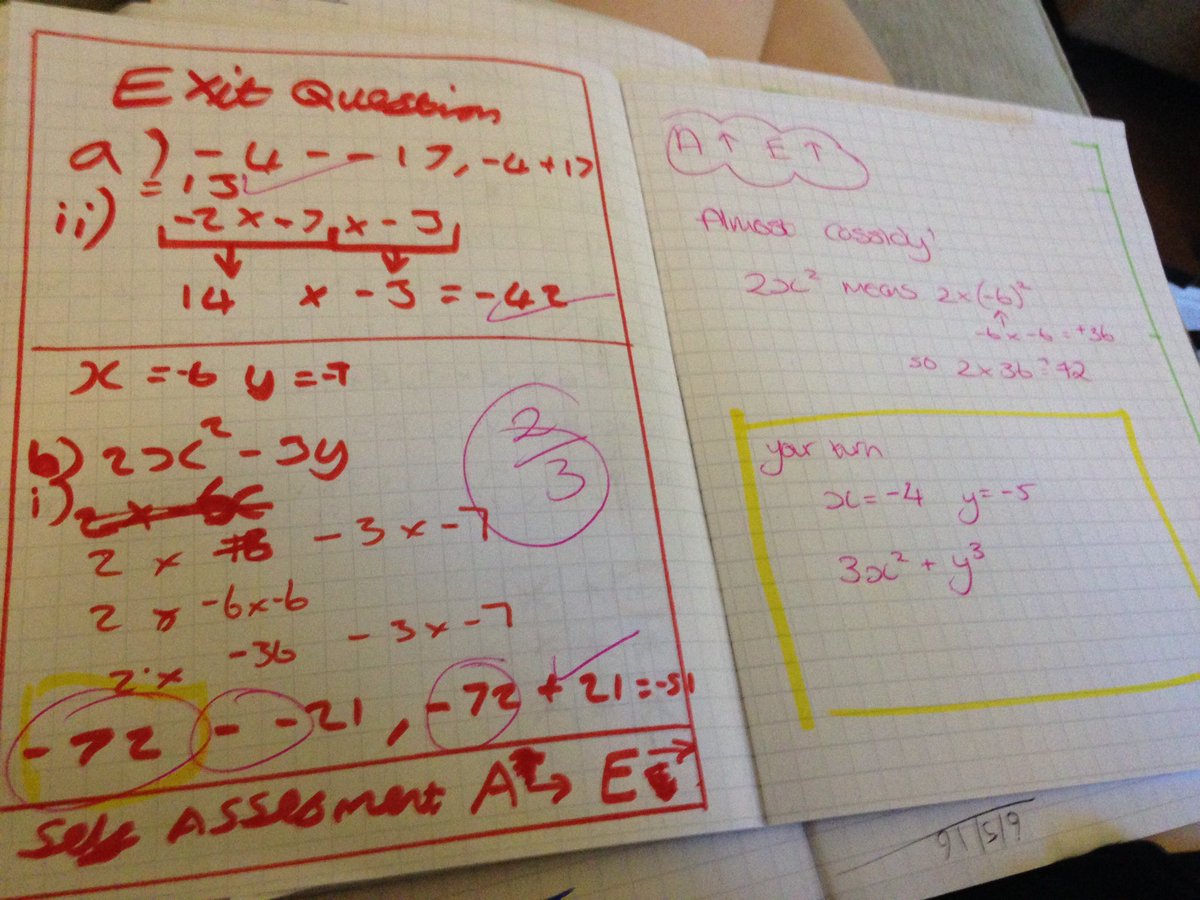 Exit Question
a) -4 - -17, -4+17
= 13
ii) -2 x -7 x -3
14 x -3 = -42
x = -6 y = -7
b) 2x² - 3y
i)
2 x - 3 x -7
2 x -6x-6
-36 - 3 x -7
2 x
-72 - -21, -72 + 21 = -51
Self Assesment A E
2/3
A ↑ E ↑
Almost Cassidy!
2x² means 2x(-6)²
↑
-6 x -6 = +36
so 2 x 36 = 72
your turn
x = -4 y = -5
3x² + y³
6/5/16